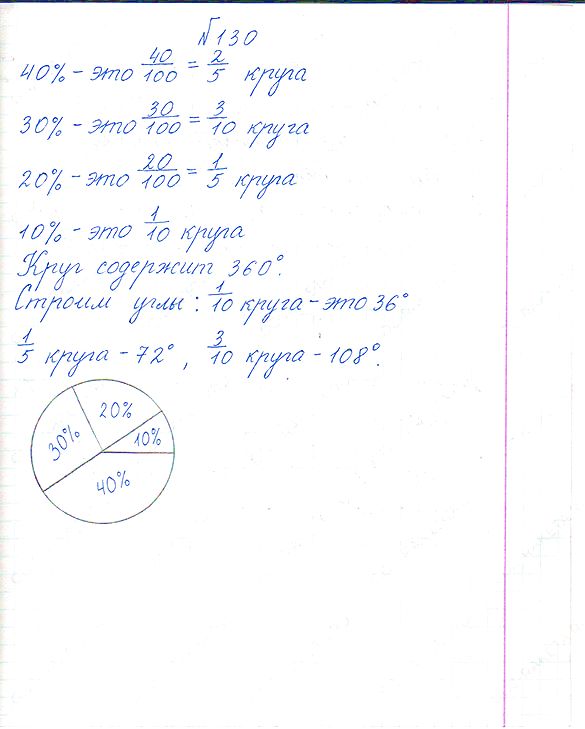 №130
40% - это 40/100 = 2/5 круга
30% - это 30/100 = 3/10 круга
20% - это 20/100 = 1/5 круга
10% - это 1/10 круга
Круг содержит 360°.
Строим углы: 1/10 круга - это 36°
1/5 круга - 72°, 3/10 круга - 108°.
20%
30%
10%
40%